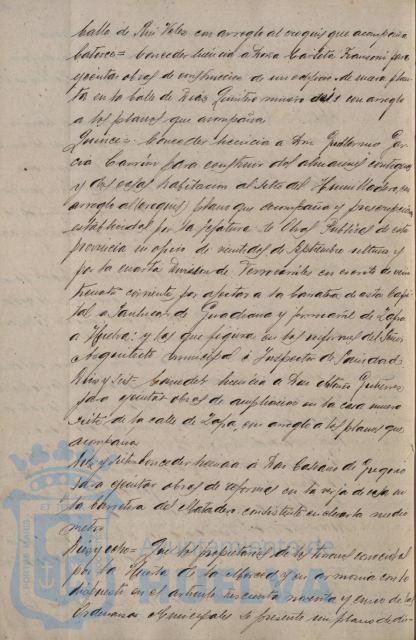 Calle de Rui Velez con arreglo al croquis que acompaña
Catorce = Conceder licencia a Doña Carlota Fransoni para
ejecutar obras de construccion de un edificio de nueva plan-
ta en la Calle de Díaz Quintero número seis con arreglo
a los planos que acompaña
Quince = Conceder licencia a Don Guillermo Gar-
cia Carrión para construir dos almacenes contiguos
y dos casas habitacion al sitio del Humilladero, con
arreglo al croquis plano que acompaña y prescripciones
establecidas por la Jefatura de Obras Publicas de esta
provincia en oficio de veintidos de Septiembre último y
por la cuarta Division de Ferrocarriles en escrito de vein-
treinta corriente por afectar a la carretera de esta Capi-
tal a Sanlucar de Guadiana y ferrocarril de Zafra
a Huelva: y los que figuran en los informes del Señor
Arquitecto Municipal e Inspector de Sanidad
Dieciseis = Conceder licencia a Don Gutierrez
para ejecutar obras de ampliacion en la casa numero
de la calle de Zafra, con arreglo a los planos que
acompaña
Diez y siete = Conceder licencia a Don Casiano de Gregorio
para ejecutar obras de reforma en la de
la carretera del Matadero consistente en
metros
Diez y ocho = Que los propietarios de los terrenos conocidos
por la Huerta de la Merced, y en armonia con lo
dispuesto en el articulo trescientos noventa y cinco de las
Ordenanzas Municipales se presente un plano de di-
Ayuntamiento de
Huelva
PORTUS MARIS